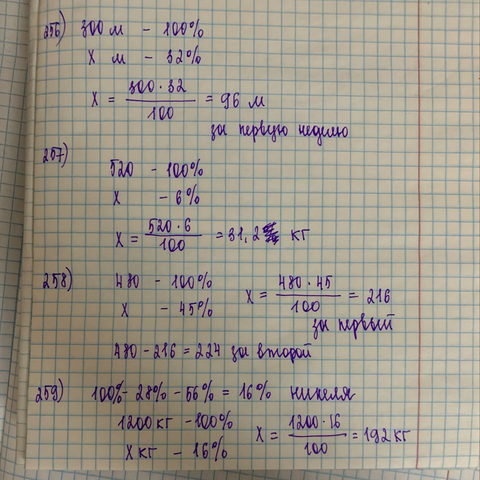 256) 300 м - 100%
х м - 32%
х = 300 · 32 / 100 = 96 м
за первую неделю
257)
520 - 100%
х - 6%
х = 520 · 6 / 100 = 31,2 кг
258) 480 - 100%
х - 45%
х = 480 · 45 / 100 = 216
за первый
480 - 216 = 224 за второй
259) 100% - 28% - 56% = 16% никеля
1200 кг - 100%
х кг - 16%
х = 1200 · 16 / 100 = 192 кг